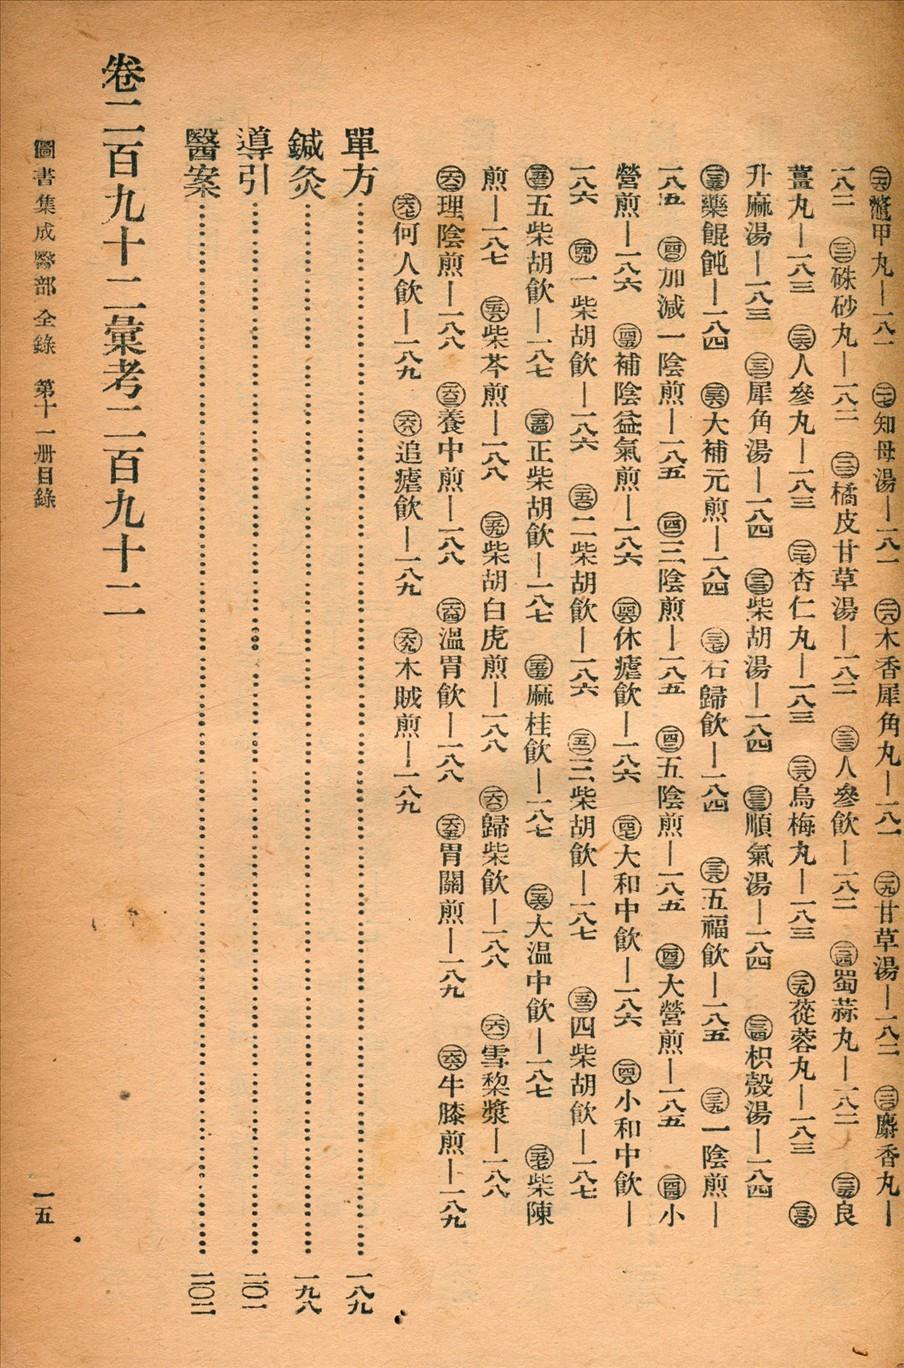 (二一六)鼈甲丸—一八一 (二一七)知母湯—一八一 (二一八)木香犀角丸—一八一 (二一九)甘草湯—一八二 (二二〇)麝香丸—
一八二 (二二一)硃砂丸—一八二 (二二二)橘皮甘草湯—一八二 (二二三)人參飲—一八二 (二二四)蜀蒜丸—一八二 (二二五)良
薑丸—一八三 (二二六)人參丸—一八三 (二二七)杏仁丸—一八三 (二二八)烏梅丸—一八三 (二二九)蓯蓉丸—一八三 (二三〇)
升麻湯—一八三 (二三一)犀角湯—一八四 (二三二)柴胡湯—一八四 (二三三)順氣湯—一八四 (二三四)枳殼湯—一八四
(二三五)藥餛飩—一八四 (二三六)大補元煎—一八四 (二三七)石歸飲—一八四 (二三八)五福飲—一八五 (二三九)一陰煎—
一八五 (二四〇)加減一陰煎—一八五 (二四一)三陰煎—一八五 (二四二)五陰煎—一八五 (二四三)大營煎—一八五 (二四四)小
營煎—一八六 (二四五)補陰益氣煎—一八六 (二四六)休瘧飲—一八六 (二四七)大和中飲—一八六 (二四八)小和中飲—
一八六 (二四九)一柴胡飲—一八六 (二五〇)二柴胡飲—一八六 (二五一)三柴胡飲—一八七 (二五二)四柴胡飲—一八七
(二五三)五柴胡飲—一八七 (二五四)正柴胡飲—一八七 (二五五)麻桂飲—一八七 (二五六)大溫中飲—一八七 (二五七)柴陳
煎—一八七 (二五八)柴芩煎—一八八 (二五九)柴胡白虎煎—一八八 (二六〇)歸柴飲—一八八 (二六一)雪棃漿—一八八
(二六二)理陰煎—一八八 (二六三)養中煎—一八八 (二六四)溫胃飲—一八八 (二六五)胃關煎—一八九 (二六六)牛膝煎—一八九
(二六七)何人飲—一八九 (二六八)追瘧飲—一八九 (二六九)木賊煎—一八九
單方……一八九
鍼灸……一九八
導引……二〇一
醫案……二〇二
卷二百九十二彙考二百九十二
圖書集成醫部全錄 第十一册目錄 一五